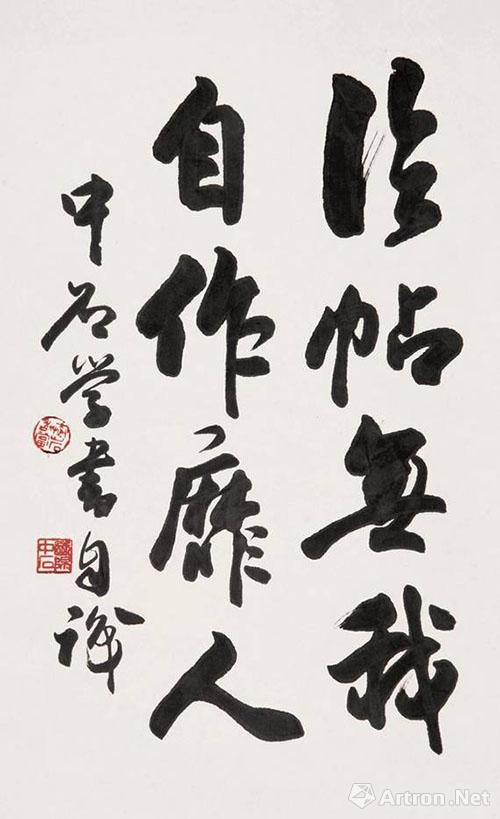 临帖無我
自作靡人
中石学書自譁
Artron.Net